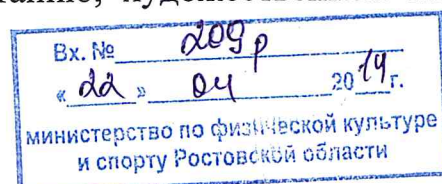 Вх. № 209 р
« 22 » 04 2014 г.
министерство по физической культуре
и спорту Ростовской области